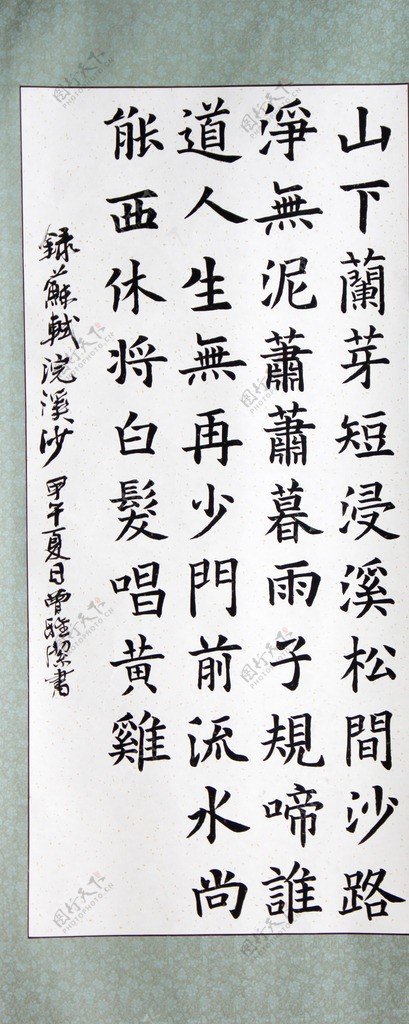 山下蘭芽短浸溪松間沙路
淨無泥蕭蕭暮雨子規啼誰
道人生無再少門前流水尚
能西休将白髮唱黃雞
録蘇軾浣溪沙 甲午夏日曾雅潔書
图行天下 PHOTOPHOTO.CN